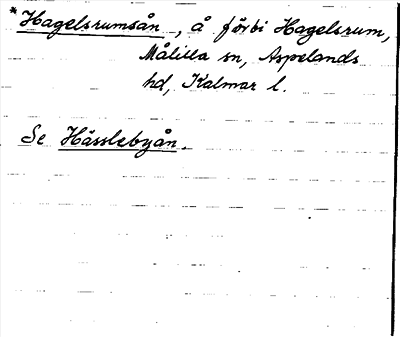 *Hagelsrumsån, å förbi Hagelsrum,
Målilla sn, Aspelands
hd, Kalmar l.
Se Hässlebyån.